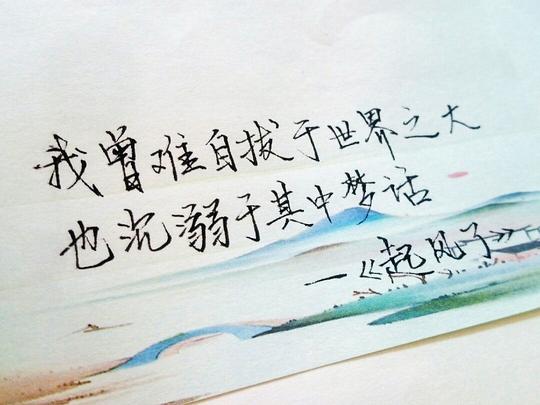 我曾难自拔于世界之大
也沉溺于其中梦话
—《起风了》